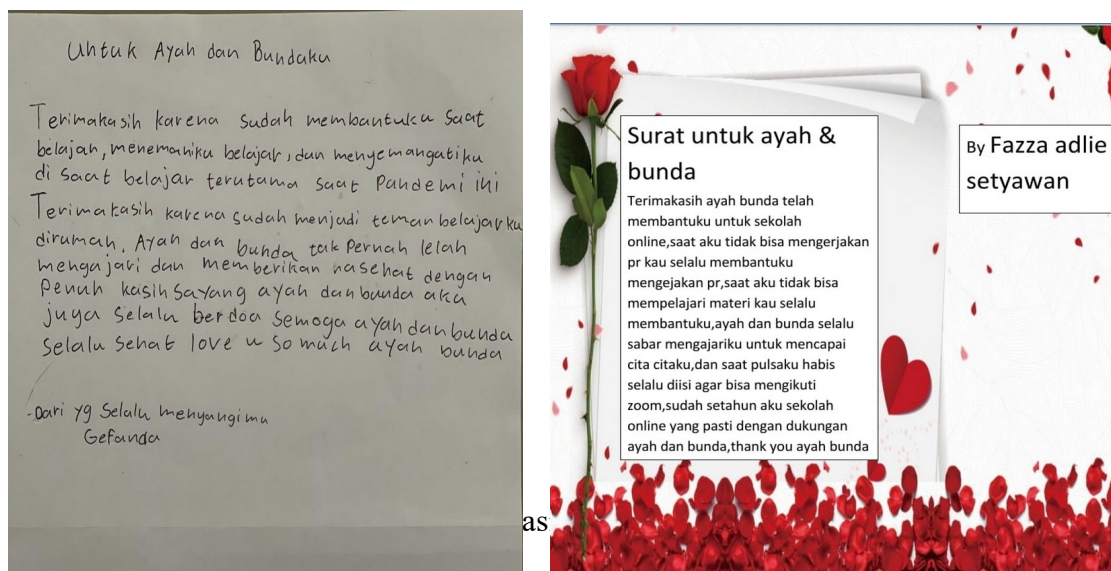 Untuk Ayah dan Bundaku
Terimakasih karena sudah membantuku saat
belajar, menemaniku belajar, dan menyemangatiku
di saat belajar terutama saat Pandemi ini
Terimakasih karena sudah menjadi teman belajarku
dirumah. Ayah dan bunda tak Pernah lelah
mengajari dan memberikan nasehat dengan
Penuh kasih sayang ayah dan bunda aku
juga selalu berdoa semoga ayah dan bunda
selalu sehat love u so much ayah bunda
-Dari yg selalu menyangimu
Gefanda
Surat untuk ayah &
bunda
Terimakasih ayah bunda telah
membantuku untuk sekolah
online,saat aku tidak bisa mengerjakan
pr kau selalu membantuku
mengejakan pr,saat aku tidak bisa
mempelajari materi kau selalu
membantuku,ayah dan bunda selalu
sabar mengajariku untuk mencapai
cita citaku,dan saat pulsaku habis
selalu diisi agar bisa mengikuti
zoom,sudah setahun aku sekolah
online yang pasti dengan dukungan
ayah dan bunda,thank you ayah bunda
By Fazza adlie
setyawan
as